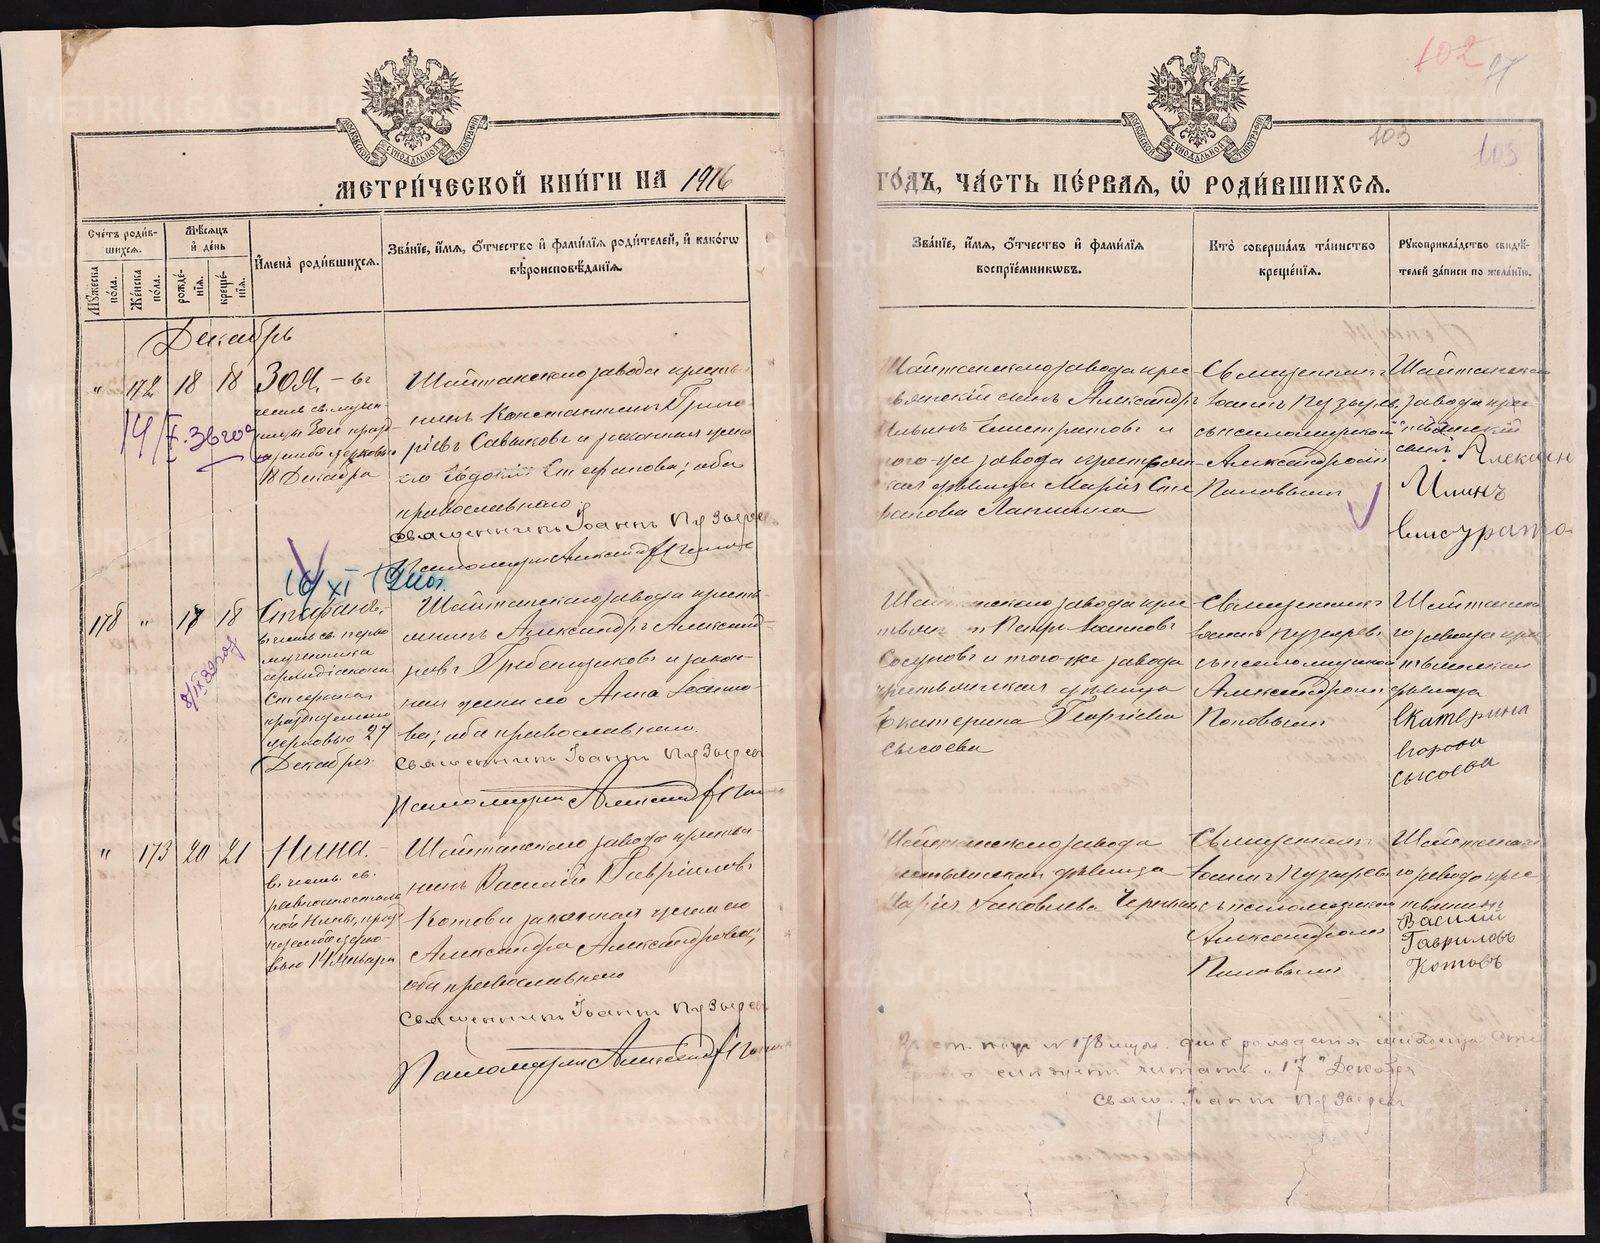 102 97
103 103
МОСКОВСКОЙ СѴНОДАЛЬНОЙ ТИПОГРАФІИ
МОСКОВСКОЙ СѴНОДАЛЬНОЙ ТИПОГРАФІИ
МЕТРИ́ЧЕСКОЙ КНИ́ГИ НА 1916
ГО́ДЪ, ЧА́СТЬ ПЕ́РВАЯ, Ѡ҆ РОДИ́ВШИХСЯ.
Сче́тъ роди́вшихся.
Мꙋ́жеска по́ла.
Же́нска по́ла.
Мѣ́сяцъ и҆ де́нь
рожде́нїя.
креще́нїя.
И҆мена̀ роди́вшихся.
Зва́нїе, и҆́мя, ѻ҆́тчество и҆ фами́лїя роди́телей, и҆ како́гѡ
вѣроисповѣ́данїя.
Зва́нїе, и҆́мя, ѻ҆́тчество и҆ фами́лїя
воспрїе́мникѡвъ.
Кто̀ соверша́лъ та́инство
креще́нїя.
Рꙋкоприкла́дство свидѣ́-
телей за́писи по жела́нїю.
Декабрь
" 172 18 18
Зоя, – въ
честь св. мучени-
цы Зои празд-
церковью
18 Декабря
14/X. 36 год
Шайтанскаго завода кресть-
нинъ Константинъ Григо-
рьевъ Савыковъ и законная жена
его Евдокія Стефанова; оба
православнаго
Священникъ Іоаннъ Пузырев
Псаломщикъ Александръ Попов
Шайтанскаго завода кре-
стьянскій сынъ Александръ
Ильинъ Елистратовъ и
того-же завода крестьян-
ская дѣвица Марія Сте-
фанова Лапшина
Священникъ
Іоаннъ Пузыревъ
съ псаломщикомъ
Александромъ
Поповымъ
Шайтанскаго
завода кре-
стьянскій
сынъ Алексан
Илинъ
Елисурато
16/XI
178 " 17 18
Стефанъ,
въ честь св. перво-
мученика
архидіакона
Стефана,
празднуемаго
церковью 27
Декабря
8/IX 39 год
Шайтанскаго завода кресть-
янинъ Александръ Александ-
ровъ Гребенщиковъ и закон-
ная жена его Анна Іоанно-
ва; оба православнаго.
Священникъ Іоаннъ Пузырев
Псаломщикъ Александръ Попов
Шайтанскаго завода кре-
стьян Петръ Іоанновъ
Сосуновъ и того-же завода
крестьянская дѣвица
Екатерина Георгіева
Сысоева
Священникъ
Іоаннъ Пузыревъ
съ псаломщикомъ
Александромъ
Поповымъ
Шайтанска
го завода кре
стьянская
дѣвица
Екатерина
Егорова
Сысоева
" 173 20 21
Нина. –
въ честь св.
равноапостоль-
ной Нины, празд-
церко-
вью 14 Января
Шайтанскаго завода крестья-
нинъ Василій Гавріиловъ
Котовъ и законная жена его
Александра Александрова;
оба православнаго
Священникъ Іоаннъ Пузырев
Псаломщикъ Александръ Попов
Шайтанскаго завода
крестьянская дѣвица
Марія Іаковлева Черных
Священникъ
Іоаннъ Пузыревъ
съ псаломщикомъ
Александромъ
Поповымъ
Шайтанска
го завода кре-
стьянинъ
Василій
Гавриловъ
Котовъ
№ 178 муж. дне рожденія младенца Сте
слѣдуетъ читать "17" Декабря
Свящ. Іоаннъ Пузырев
METRIKI.GASO-URAL.RU